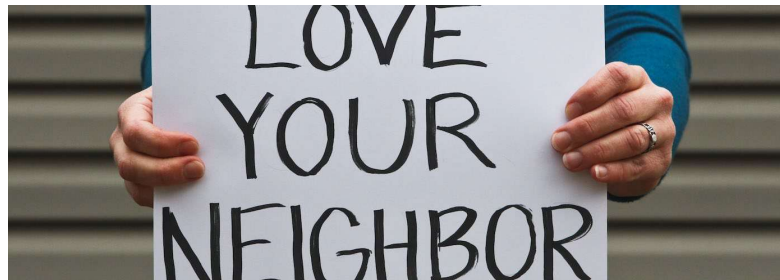 LOVE
YOUR
NEIGHBOR